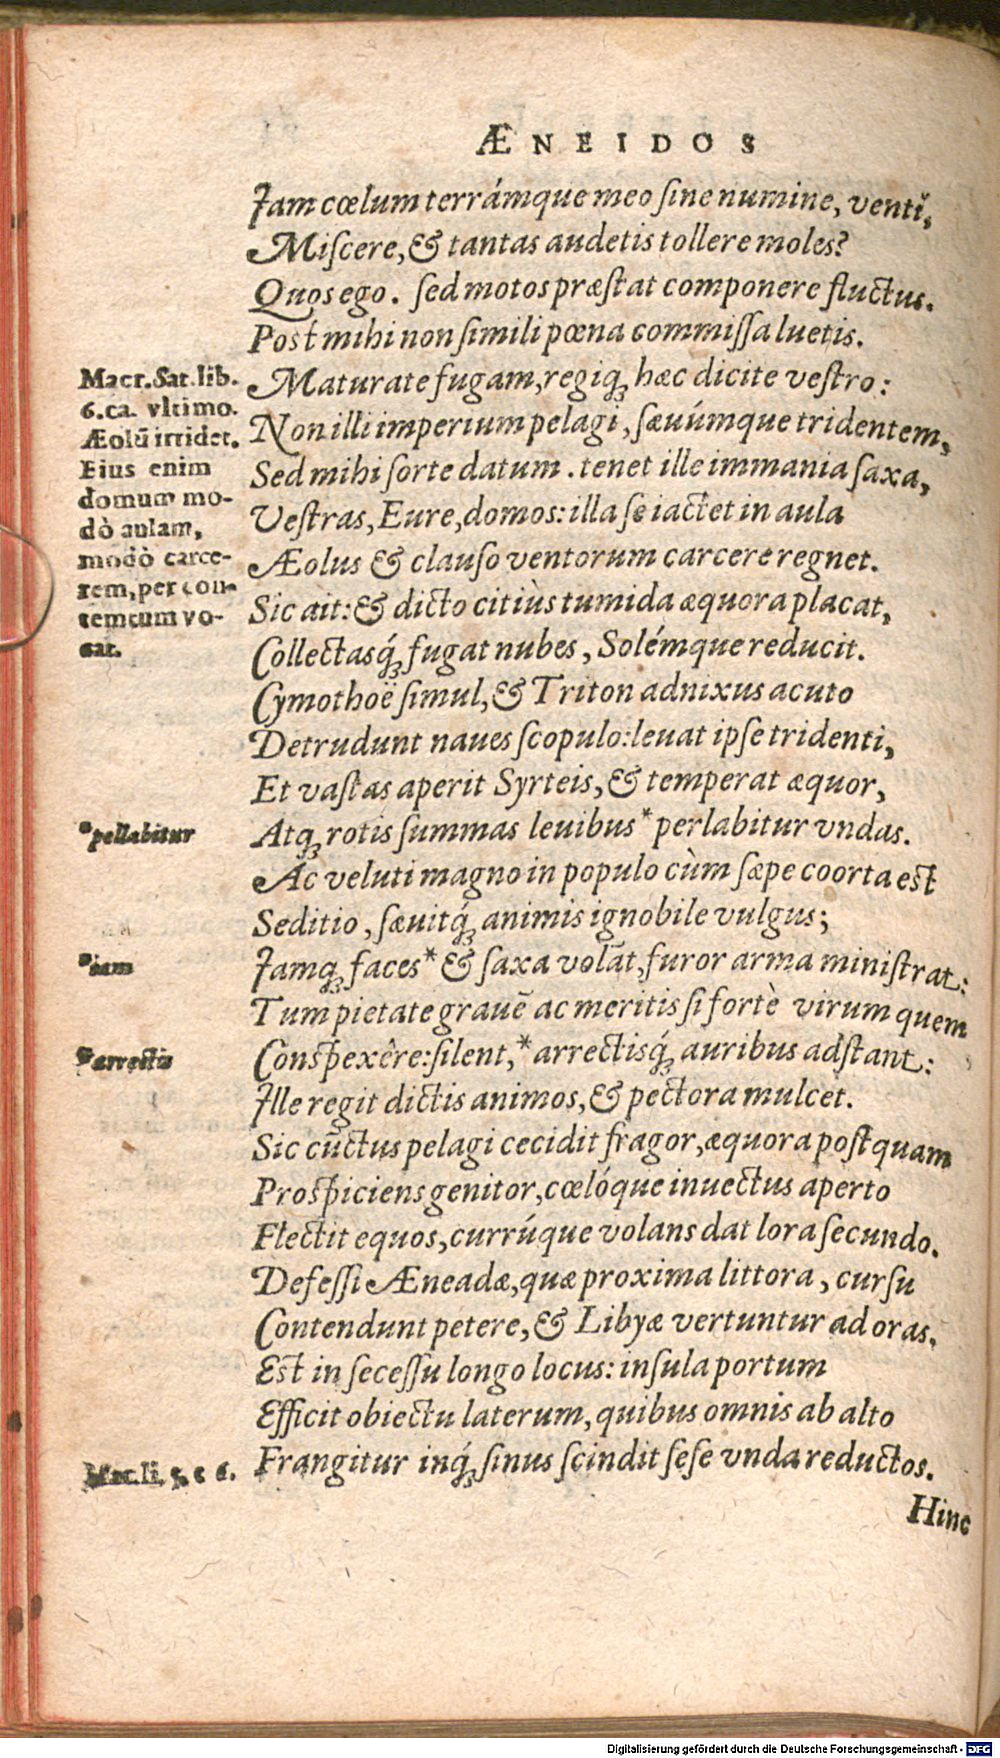 ÆNEIDOS
Jam cœlum terrámque meo ſine numine, venti,
Miſcere, & tantas audetis tollere moles?
Quos ego. ſed motos præſtat componere fluctus.
Poſt mihi non ſimili pœna commiſſa luetis.
Maturate fugam, regiq́; hæc dicite veſtro:
Non illi imperium pelagi, ſæuúmque tridentem,
Sed mihi ſorte datum. tenet ille immania ſaxa,
Veſtras, Eure, domos: illa ſe iactet in aula
Æolus & clauſo ventorum carcere regnet.
Sic ait: & dicto citiùs tumida æquora placat,
Collectasq́; fugat nubes, Solémque reducit.
Cymothoë ſimul, & Triton adnixus acuto
Detrudunt naues ſcopulo: leuat ipſe tridenti,
Et vaſtas aperit Syrteis, & temperat æquor,
Atq; rotis ſummas leuibus * perlabitur vndas.
Ac veluti magno in populo cùm ſæpe coorta eſt
Seditio, ſæuitq́; animis ignobile vulgus;
Jamq; faces * & ſaxa volāt, furor arma miniſtrat:
Tum pietate grauē ac meritis ſi fortè virum quem
Conſpexêre: ſilent, * arrectisq́; auribus adſtant:
Ille regit dictis animos, & pectora mulcet.
Sic cūctus pelagi cecidit fragor, æquora poſtquam
Proſpiciens genitor, cœlóque inuectus aperto
Flectit equos, currúque volans dat lora ſecundo.
Defeſſi Æneadæ, quæ proxima littora, curſu
Contendunt petere, & Libyæ vertuntur ad oras.
Eſt in ſeceſſu longo locus: inſula portum
Efficit obiectu laterum, quibus omnis ab alto
Frangitur inq́; ſinus ſcindit ſeſe vnda reductos.
Hinc
Macr. Sat. lib.
6. ca. vltimo.
Æolū irridet.
Eius enim
domum mo-
dò aulam,
modò carce-
rem, per con-
temtum vo-
cat.
* pellabitur
* iam
* arrectis
Mac. li. 5. c 6.
Digitalisierung gefördert durch die Deutsche Forschungsgemeinschaft - DFG